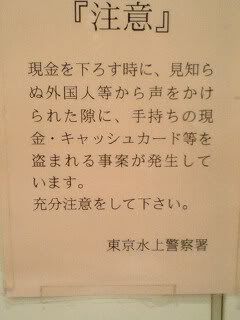 『注意』
現金を下ろす時に、見知ら
ぬ外国人等から声をかけ
られた隙に、手持ちの現
金・キャッシュカード等を
盗まれる事案が発生して
います。
充分注意をして下さい。
東京水上警察署